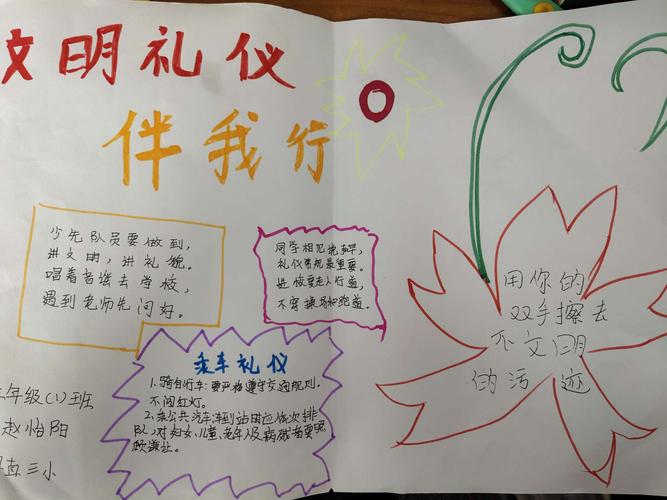 文明礼仪
伴我行
少先队员要做到，
讲文明，讲礼貌。
唱着着歌去学校，
遇到老师先问好。
同学相见说声早，
礼仪常规最重要。
进校要走人行道，
不穿操场和跑道。
乘车礼仪
1、骑自行车：要严格遵守交通规则，
不闯红灯。
2、乘公共汽车：车到站时应依次排
队，对妇女、儿童、老年人及病残者要照
顾谦让。
用你的
双手擦去
不文明
的污迹
年级(1)班
赵怡阳
直三小